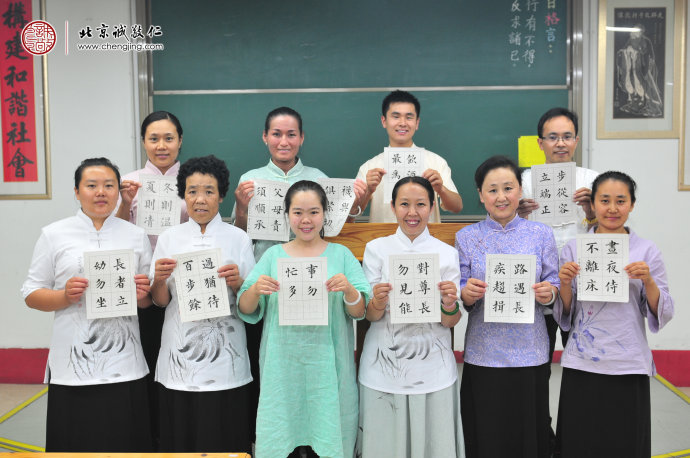 構建和諧社會
誠敬仁
北京誠敬仁
www.chengjing.com
日格言：
行有不得，
反求諸己。
冬則溫
夏則清
父母責
須順承
飲
最為
步從容
立端正
長者立
幼勿坐
過猶待
百步餘
事勿
忙多
對尊長
勿見能
路遇長
疾趨揖
晝夜侍
不離床